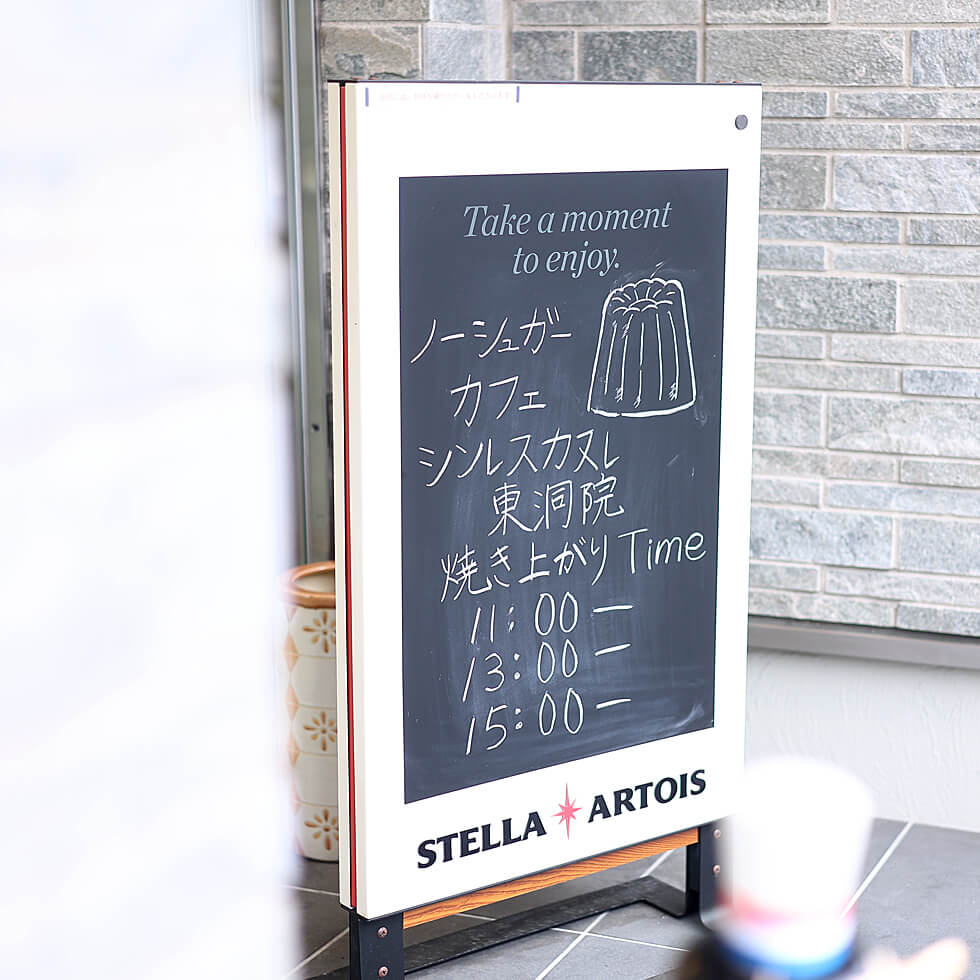 Take a moment
to enjoy.
ノーシュガー
カフェ
シンレスカヌレ
東洞院
焼き上がりTime
11:00ー
13:00ー
15:00ー
STELLA ARTOIS